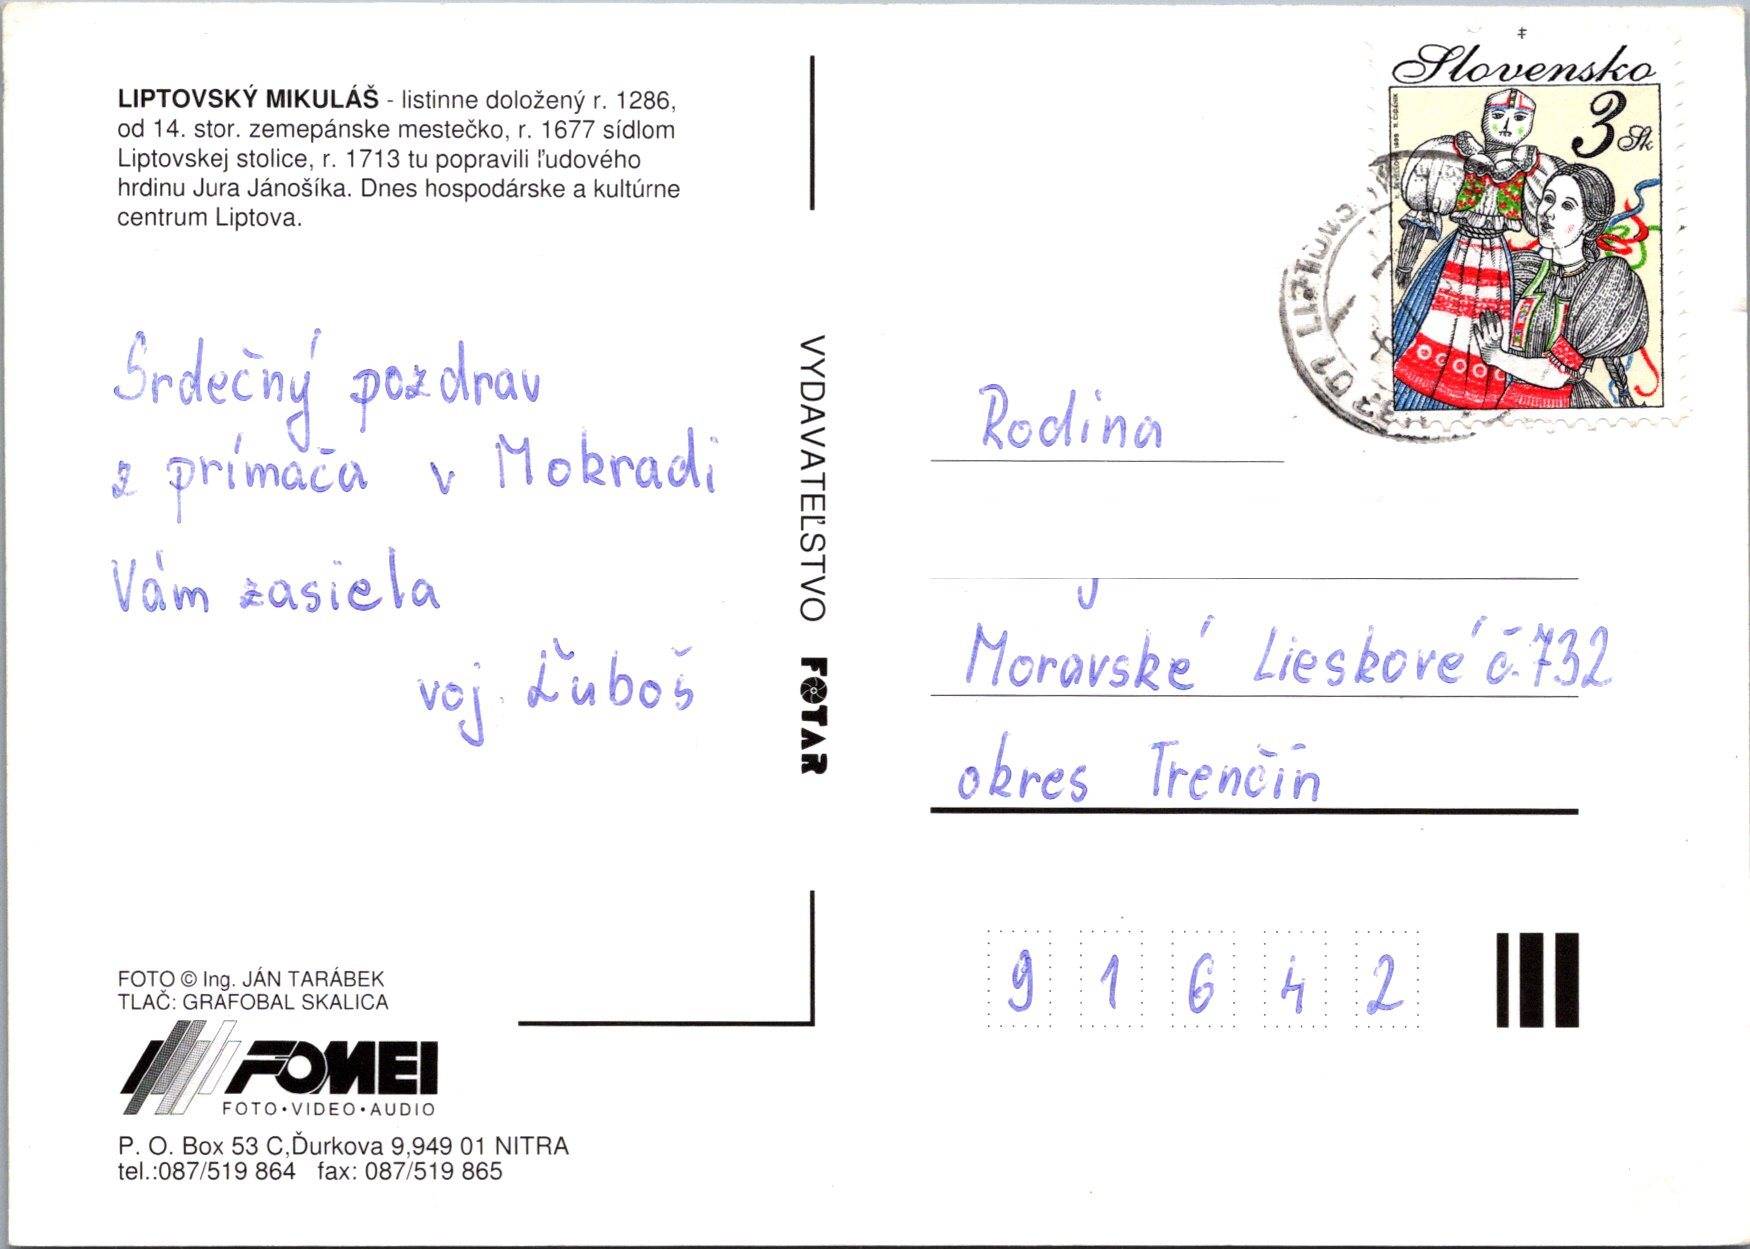 LIPTOVSKÝ MIKULÁŠ - listinne doložený r. 1286,
od 14. stor. zemepánske mestečko, r. 1677 sídlom
Liptovskej stolice, r. 1713 tu popravili ľudového
hrdinu Jura Jánošíka. Dnes hospodárske a kultúrne
centrum Liptova.
Srdečný pozdrav
z prímača v Mokradi
Vám zasiela
voj. Ľuboš
FOTO © Ing. JÁN TARÁBEK
TLAČ: GRAFOBAL SKALICA
FOMEI
FOTO•VIDEO•AUDIO
P. O. Box 53 C,Ďurkova 9,949 01 NITRA
tel.:087/519 864 fax: 087/519 865
VYDAVATEĽSTVO FOTAR
Slovensko
3 Sk
01 LIPTOVSK
Rodina
Moravské Lieskové č.732
okres Trenčín
91642